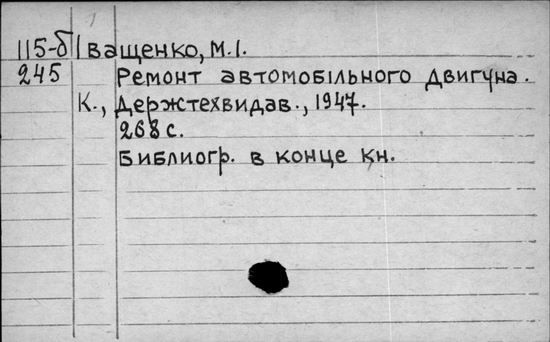 115-б Іващенко, М.І.
245 Ремонт автомобільного двигуна.
К., Держтехвидав., 1947.
268 с.
Библиогр. в конце кн.